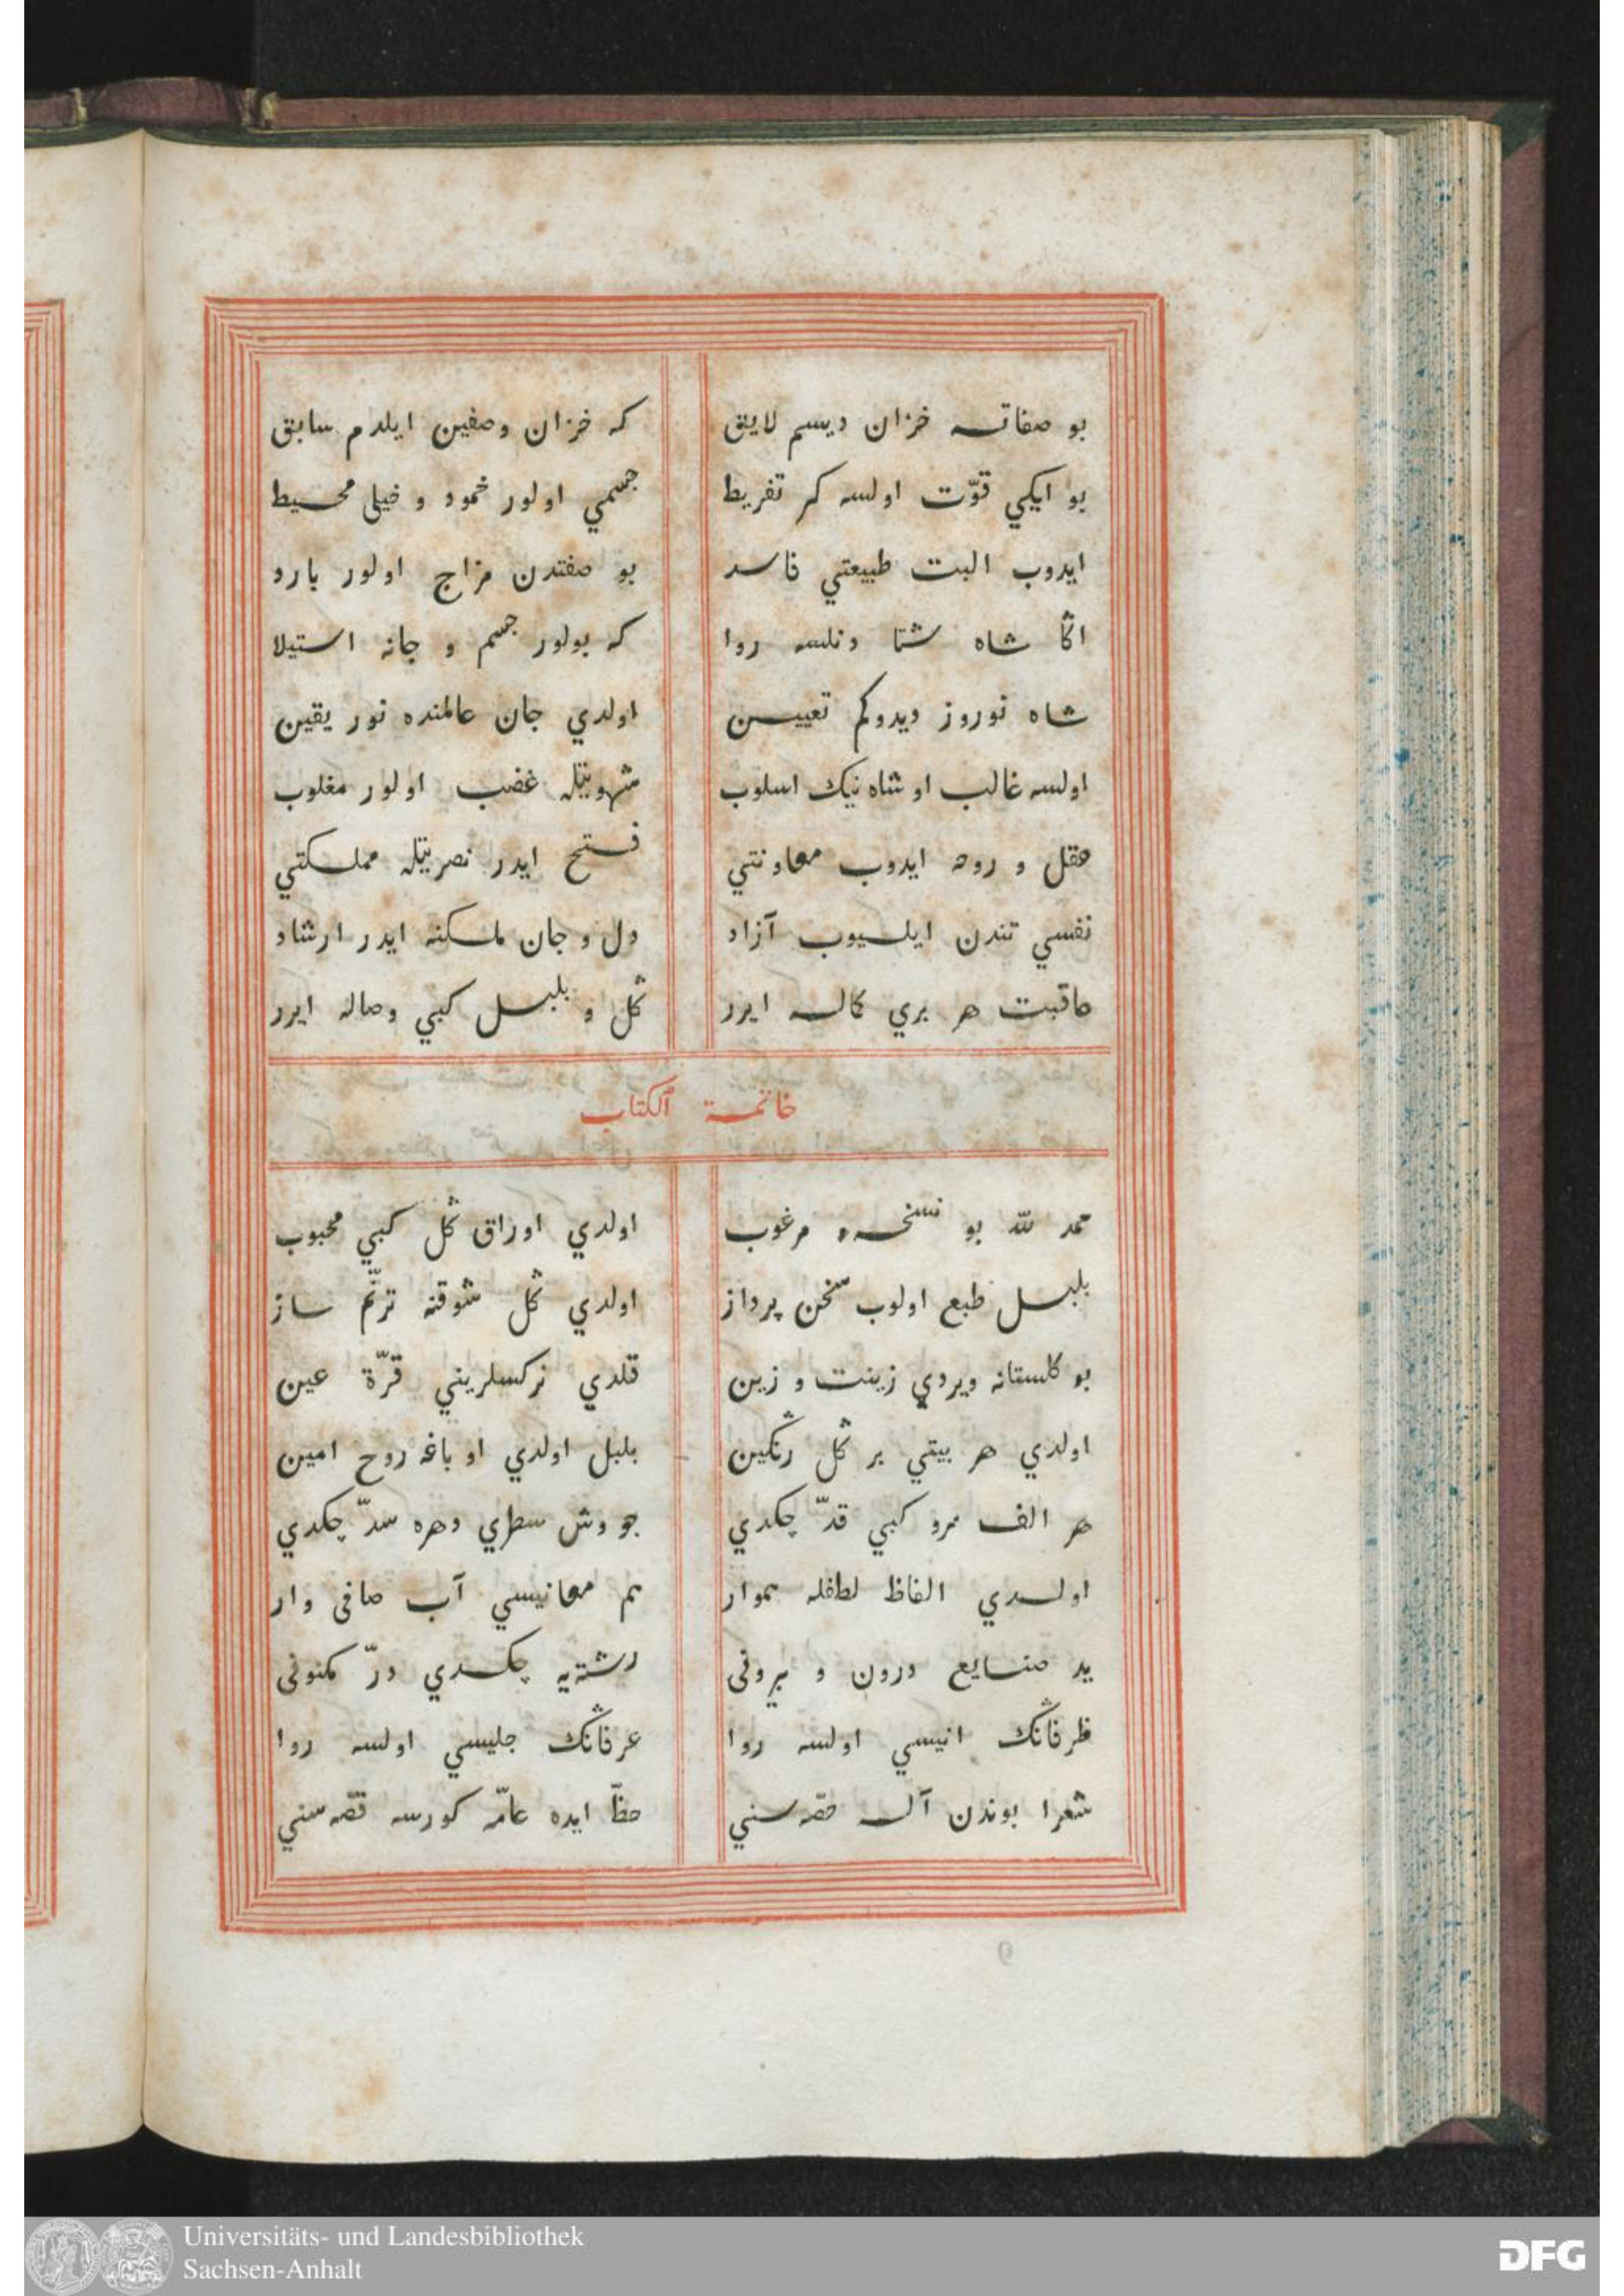 بو صفاته خزان ديسم لايق که خزان وصفين ايلدم سابق
بو ايکي قوّت اولسه کر تفريط جسمي اولور خمود و خيلی محيط
ايدوب البت طبيعتي فاسد بو صفتدن مزاج اولور بارد
اڭا شاه شتا دنلسه روا که بولور جسم و جانه استيلا
شاه نوروز ديدوکم تعيين اولدي جان عالمنده نور يقين
اولسه غالب او شاه نيک اسلوب شهوتيله غضب اولور مغلوب
عقل و روحه ايدوب معاونتي فتح ايدر نصرتيله مملکتي
نفسي تندن ايلسيوب آزاد دل و جان ملکنه ايدر ارشاد
عاقبت هر بري کماله ايرر ڭل و بلبل کبي وصاله ايرر
خاتمة الکتاب
حمد لله بو نسخهء مرغوب اولدي اوراق ڭل کبي محبوب
بلبل طبع اولوب سخن پرداز اولدي ڭل شوقنه ترنّم ساز
بو کلستانه ويردي زينت و زين قلدي نرکسلريني قرّة عين
اولدي هر بيتي بر ڭل رنڭين بلبل اولدي او باغه روح امين
هر الف سرو کبي قدّ چکدي جو وش سطري دهره سدّ چکدي
اولدي الفاظ لطفله هموار هم معانيسي آب صافی وار
يد صنايع درون و بيرونی رشته‌يه چکدي درّ مکنونی
ظرفانڭ انيسي اولسه روا عرفانڭ جليسي اولسه روا
شعرا بوندن آله حصّه‌سني حظّ ايده عامّه کورسه قصّه‌سني
Universitäts- und Landesbibliothek
Sachsen-Anhalt
DFG